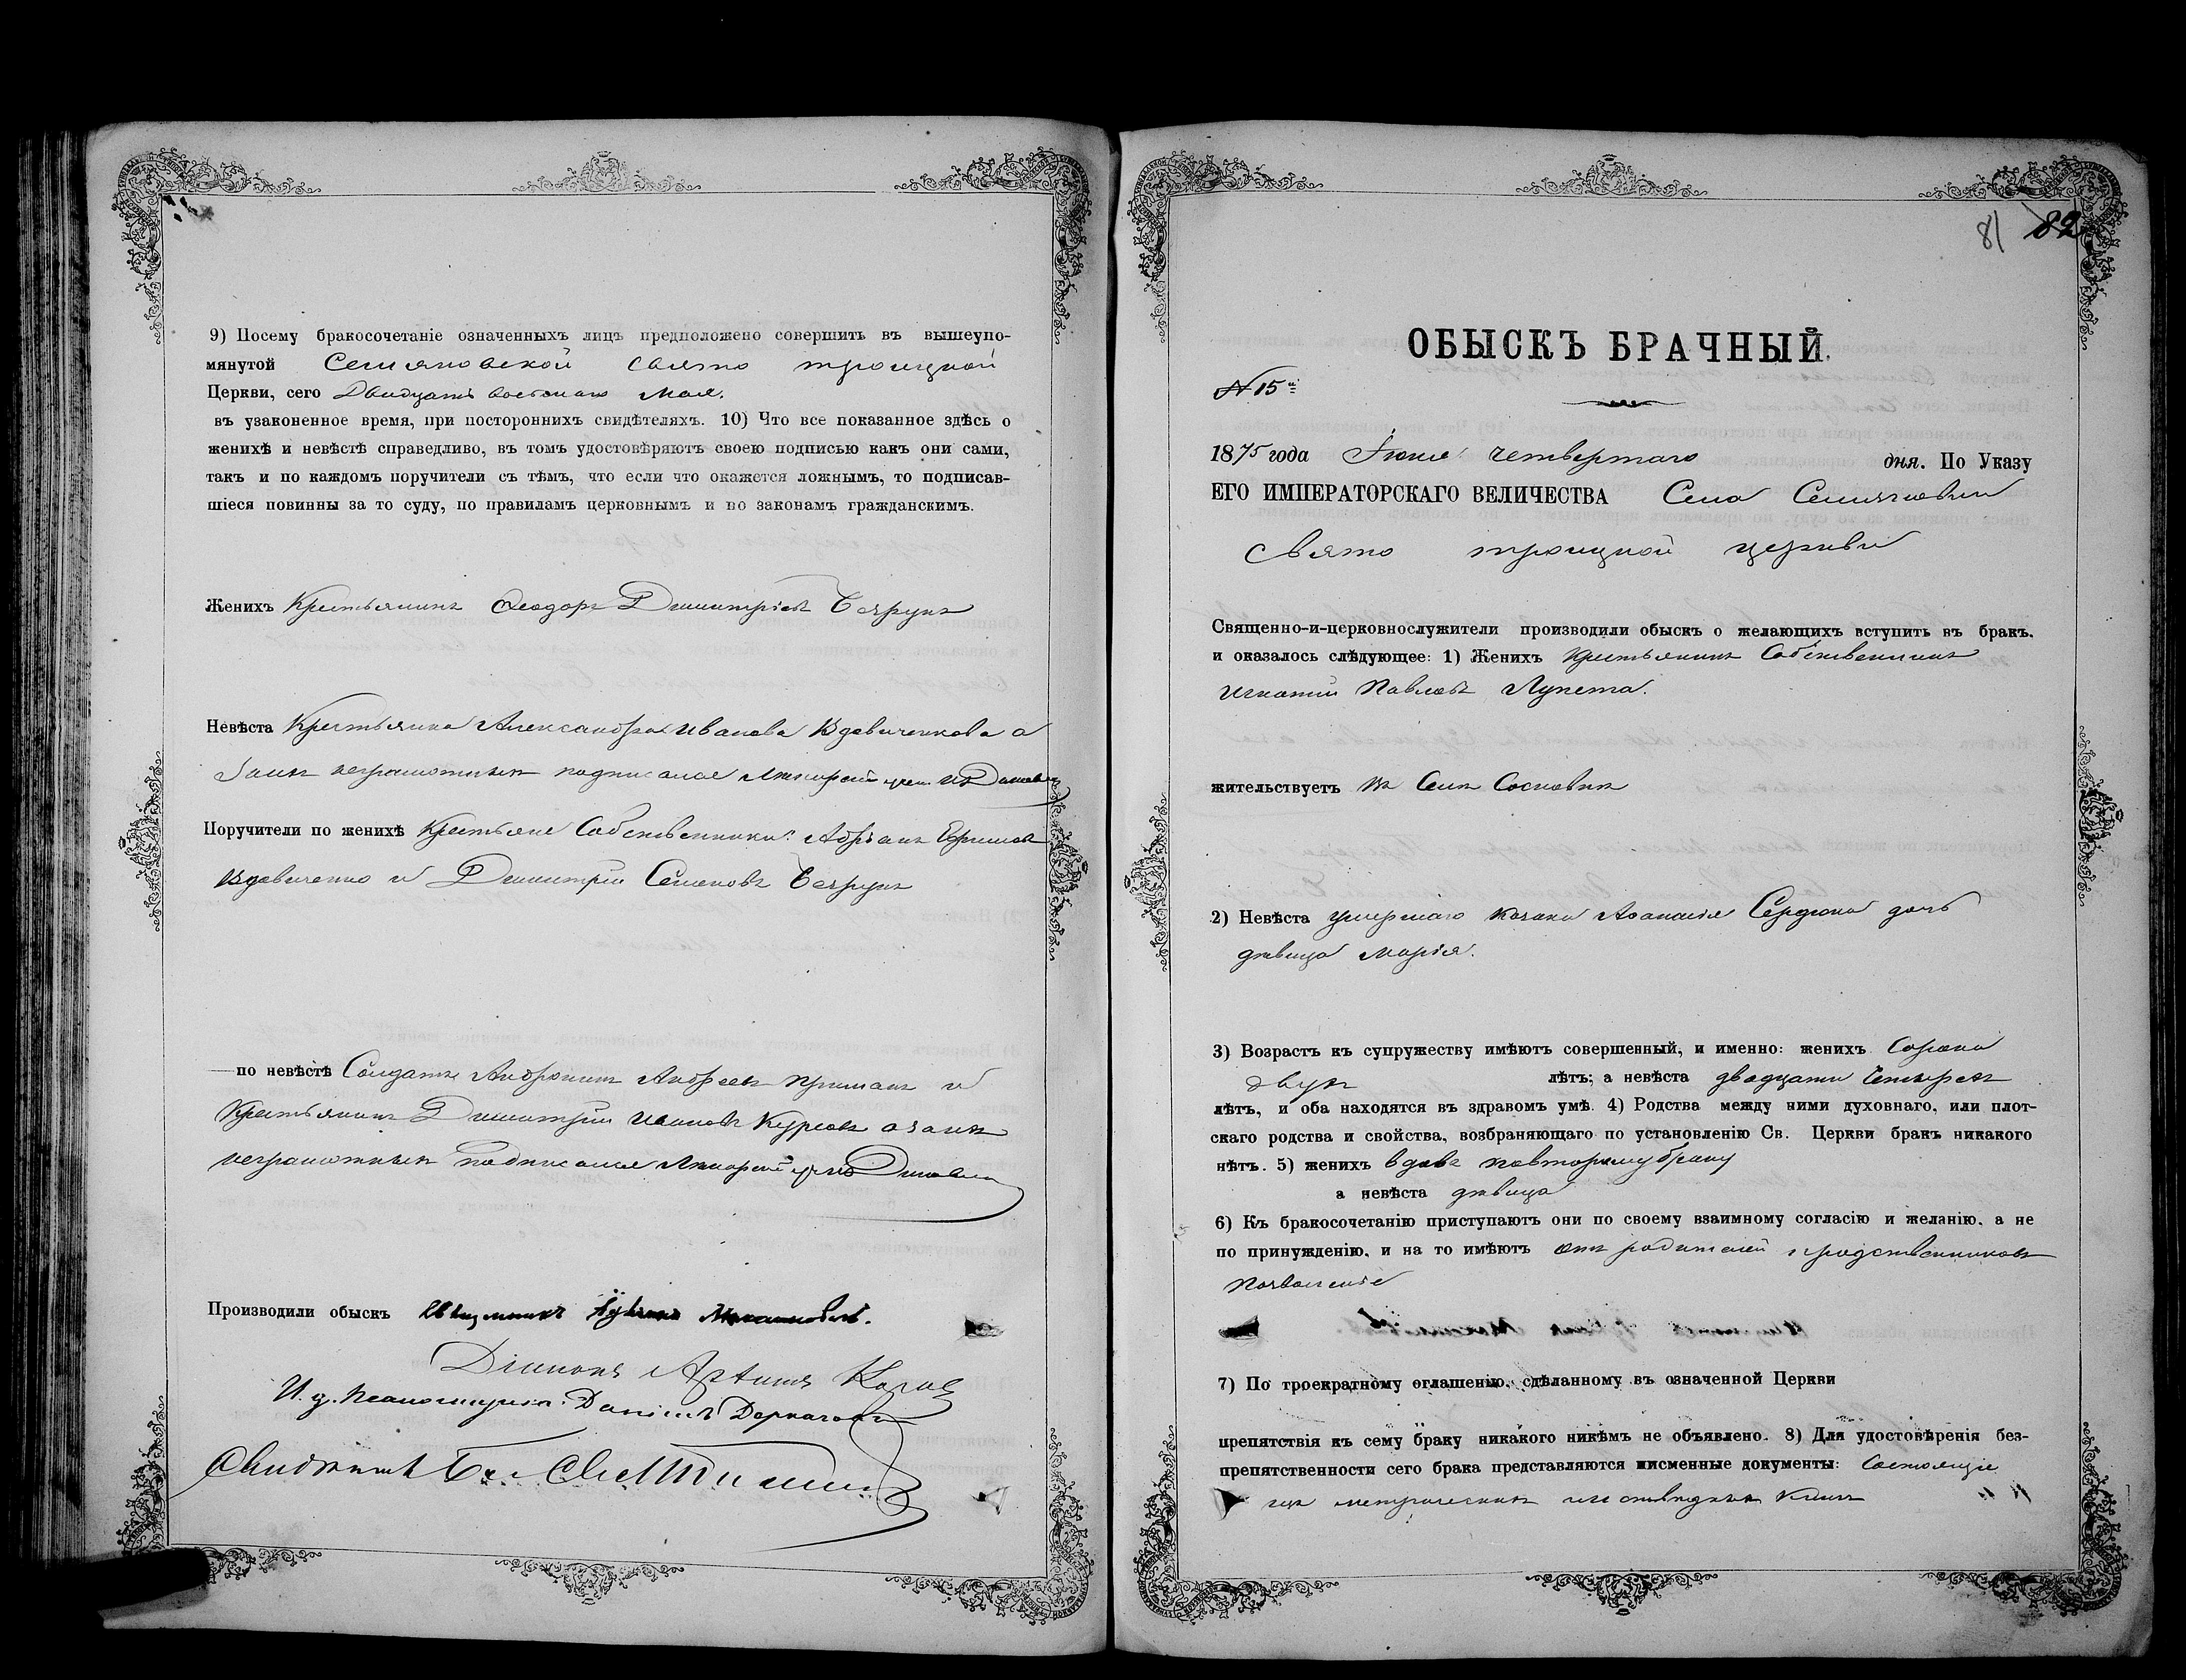 9) Посему бракосочетаніе означенныхъ лицъ предположено совершить въ вышеупо-
мянутой Семяновской свято троицкой
Церкви, сего Двадцать восьмаго Мая.
въ узаконенное время, при постороннихъ свидѣтеляхъ. 10) Что все показанное здѣсь о
женихѣ и невѣстѣ справедливо, въ томъ удостовѣряютъ своею подписью какъ они сами,
такъ и по каждомъ поручители съ тѣмъ, что если что окажется ложнымъ, то подписав-
шіеся повинны за то суду, по правиламъ церковнымъ и по законамъ гражданскимъ.
Женихъ Крестьянинъ Ѳеодоръ Димитріевъ
Невѣста Крестьянка Александра Иванова Вдовиченкова а
неграмотныхъ подписался
Поручители по женихѣ Крестьяне Собственники: Адріанъ Ефимовъ
Вдовиченко и Димитрій Семеновъ
по невѣстѣ Солдатъ Андреевъ и
Крестьянинъ Димитрій Ивановъ
неграмотныхъ подписался
Производили обыскъ
Діаконъ
И. д. Псаломщика Даніилъ
81 82
ОБЫСКЪ БРАЧНЫЙ.
№ 15й
1875 года Іюня четвертаго дня. По Указу
ЕГО ИМПЕРАТОРСКАГО ВЕЛИЧЕСТВА Села Семяновки
свято троицкой церкви
Священно-и-церковнослужители производили обыскъ о желающихъ вступить въ бракъ,
и оказалось слѣдующее: 1) Женихъ Крестьянинъ Собственникъ
Игнатій Павловъ Лупета.
жительствуетъ въ Селѣ Сосновкѣ
2) Невѣста умершаго козака Аѳанасія Сердюка дочь
дѣвица Марія.
3) Возрастъ къ супружеству имѣютъ совершенный, и именно: женихъ Сорока
двухъ лѣтъ; а невѣста двадцати четырехъ
лѣтъ, и оба находятся въ здравомъ умѣ. 4) Родства между ними духовнаго, или плот-
скаго родства и свойства, возбраняющаго по установленію Св. Церкви бракъ никакого
нѣтъ. 5) женихъ вдовъ повторому браку
а невѣста дѣвица
6) Къ бракосочетанію приступаютъ они по своему взаимному согласію и желанію, а не
по принужденію, и на то имѣютъ отъ родителей и родственниковъ
позволеніе
7) По троекратному оглашенію, сдѣланному въ означенной Церкви
препятствія къ сему браку никакого никѣмъ не объявлено. 8) Для удостовѣренія без-
препятственности сего брака представляются письменные документы: Состоящіе
метрическихъ исповѣдныхъ книгъ